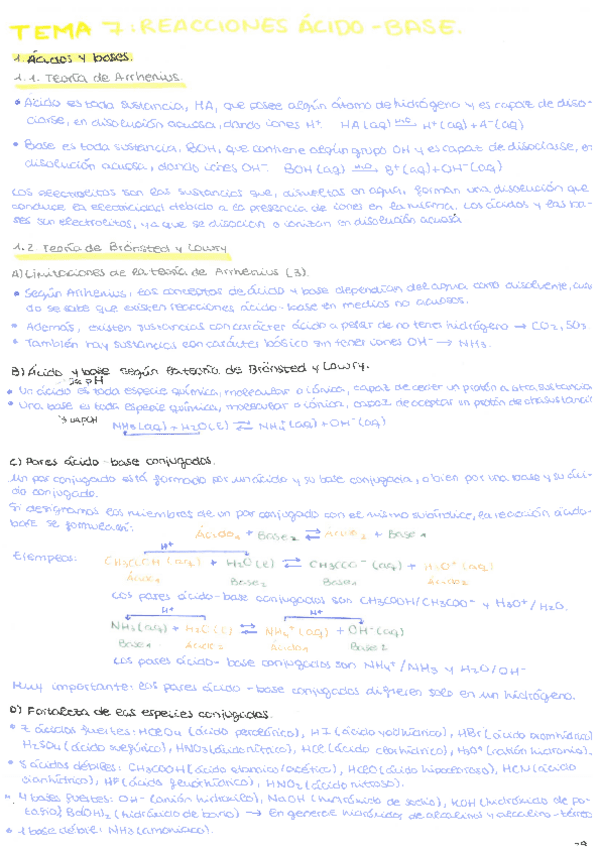 TEMA 7: REACCIONES ÁCIDO-BASE.
1. Ácidos y bases.
1.1. Teoría de Arrhenius.
• Ácido es toda sustancia, HA, que posee algún átomo de hidrógeno y es capaz de diso-
ciarse, en disolución acuosa, dando iones H⁺ HA(aq) →(H₂O) H⁺(aq) + A⁻(aq)
• Base es toda sustancia, BOH, que contiene algún grupo OH y es capaz de disociarse, en
disolución acuosa, dando iones OH⁻. BOH(aq) →(H₂O) B⁺(aq) + OH⁻(aq)
Los electrolitos son las sustancias que, disueltas en agua, forman una disolución que
conduce la electricidad debido a la presencia de iones en la misma. Los ácidos y las ba-
ses son electrolitos, ya que se disocian o ionizan en disolución acuosa
1.2. Teoría de Brönsted y Lowry
A) Limitaciones de la teoría de Arrhenius (3).
• Según Arrhenius, los conceptos de ácido y base dependían del agua como disolvente, cuan
do se sabe que existen reacciones ácido-base en medios no acuosos.
• Además, existen sustancias con carácter ácido a pesar de no tener hidrógeno → CO₂, SO₃
• También hay sustancias con carácter básico sin tener iones OH⁻ → NH₃.
B) Ácido y base según la teoría de Brönsted y Lowry.
• Un ácido es toda especie química, molecular o iónica, capaz de ceder un protón a otra sustancia
• Una base es toda especie química, molecular o iónica, capaz de aceptar un protón de otra sustancia
NH₃(aq) + H₂O(l) ⇌ NH₄⁺(aq) + OH⁻(aq)
C) Pares ácido-base conjugados.
Un par conjugado está formado por un ácido y su base conjugada, o bien por una base y su áci-
do conjugado.
Si designamos los miembros de un par conjugado con el mismo subíndice, la reacción ácido-
base se formulará:
Ácido₁ + Base₂ ⇌ Ácido₂ + Base₁
H⁺
Ejemplos: CH₃COOH(aq) + H₂O(l) ⇌ CH₃COO⁻(aq) + H₃O⁺(aq)
Ácido₁ Base₂ Base₁ Ácido₂
Los pares ácido-base conjugados son CH₃COOH/CH₃COO⁻ y H₃O⁺/H₂O.
H⁺ H⁺
NH₃(aq) + H₂O(l) ⇌ NH₄⁺(aq) + OH⁻(aq)
Base₁ Ácido₂ Ácido₁ Base₂
Los pares ácido-base conjugados son NH₄⁺/NH₃ y H₂O/OH⁻
Muy importante: los pares ácido-base conjugados difieren solo en un hidrógeno.
D) Fortaleza de las especies conjugadas.
• 7 ácidos fuertes: HClO₄ (ácido perclórico), HI (ácido yodhídrico), HBr (ácido bromhídrico)
H₂SO₄ (ácido sulfúrico), HNO₃ (ácido nítrico), HCl (ácido clorhídrico), H₃O⁺ (catión hidronio).
• 5 ácidos débiles: CH₃COOH (ácido etanoico/acético), HClO (ácido hipocloroso), HCN (ácido
cianhídrico), HF (ácido fluorhídrico), HNO₂ (ácido nitroso).
• 4 bases fuertes: OH⁻ (anión hidroxilo), NaOH (hidróxido de sodio), KOH (hidróxido de po-
tasio), Ba(OH)₂ (hidróxido de bario) → En general hidróxidos de alcalinos y alcalino-térreos
• 1 base débil: NH₃ (amoniaco).